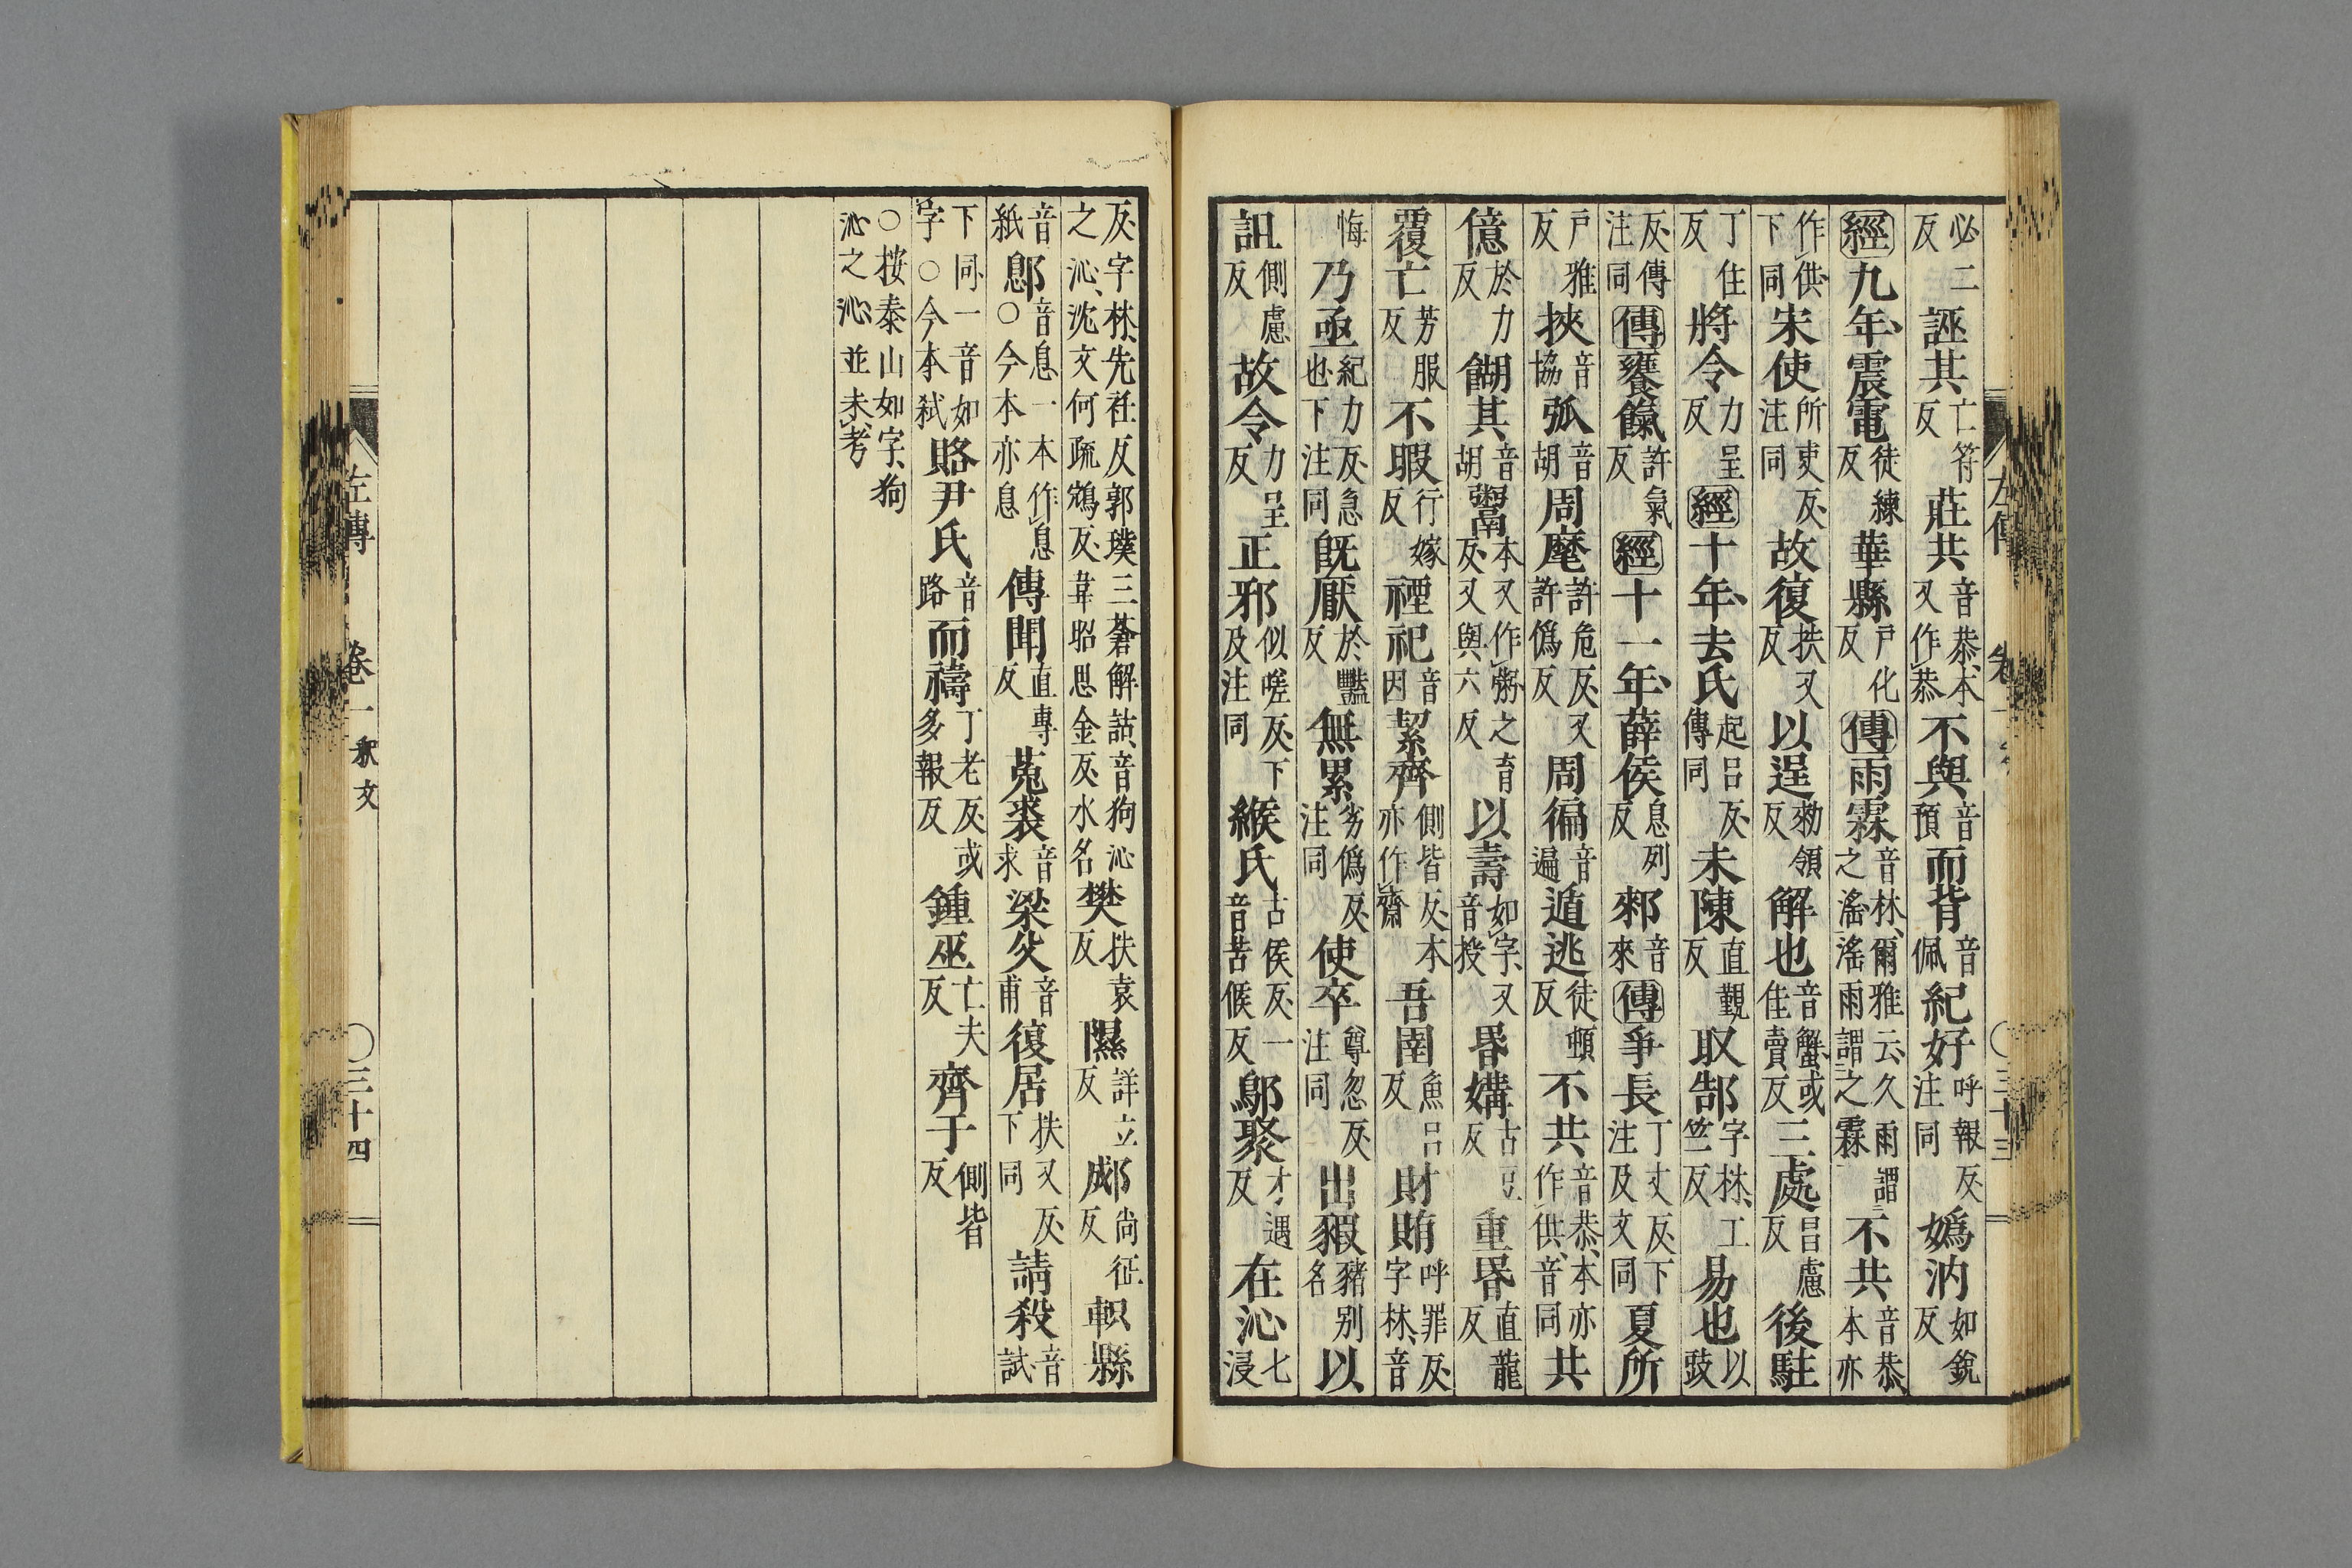 必二反誣其亡符反莊共音恭本又作恭不與音預而背音佩紀好呼報反注同嬀汭如銳反
經九年震電徒練反華縣戶化反傳雨霖音林爾雅云久雨謂之淫淫雨謂之霖不共音恭本亦
作供下同宋使所吏反注同故復扶又反以逞勑領反解也音蟹或佳賣反三處昌慮反後駐
丁住反將令力呈反經十年去氏起呂反傳同未陳直覲反取郜字林工竺反易也以豉
反傳注同傳饔餼許氣反經十一年薛侯息列反郲音來傳爭長丁丈反下注及文同夏所
戶雅反挾音協弧音胡周麾許危反又許僞反周徧音遍遁逃徒頓反不共音恭本亦作供音同共
億於力反餬其音胡鬻本又作粥之育反又與六反以壽如字又音授昬媾古豆反重昬直龍反
覆亡芳服反不暇行嫁反禋祀音因絜齊側皆反本亦作齋吾圉魚呂反財賄呼罪反字林音
悔乃亟紀力反急也下注同旣厭於豔反無累劣僞反注同使卒尊忽反注同出豭豬別名以
詛側慮反故令力呈反正邪似嗟反下及注同緱氏古侯反一音苦候反鄔聚才遇反在沁七浸
反字林先衽反郭璞三蒼解詁音狗沁之沁沈文何疏鴆反韋昭思金反水名樊扶袁反隰詳立反郕尚征反軹縣
音紙鄎音息一本作息○今本亦息傳聞直專反菟裘音求梁父音甫復居扶又反下同請殺音試
下同一音如字○今本弒賂尹氏音路而禱丁老反或多報反鍾巫亡夫反齊于側皆反
○按泰山如字狗沁之沁並未考
左傳 卷一 釈文 ○三十四